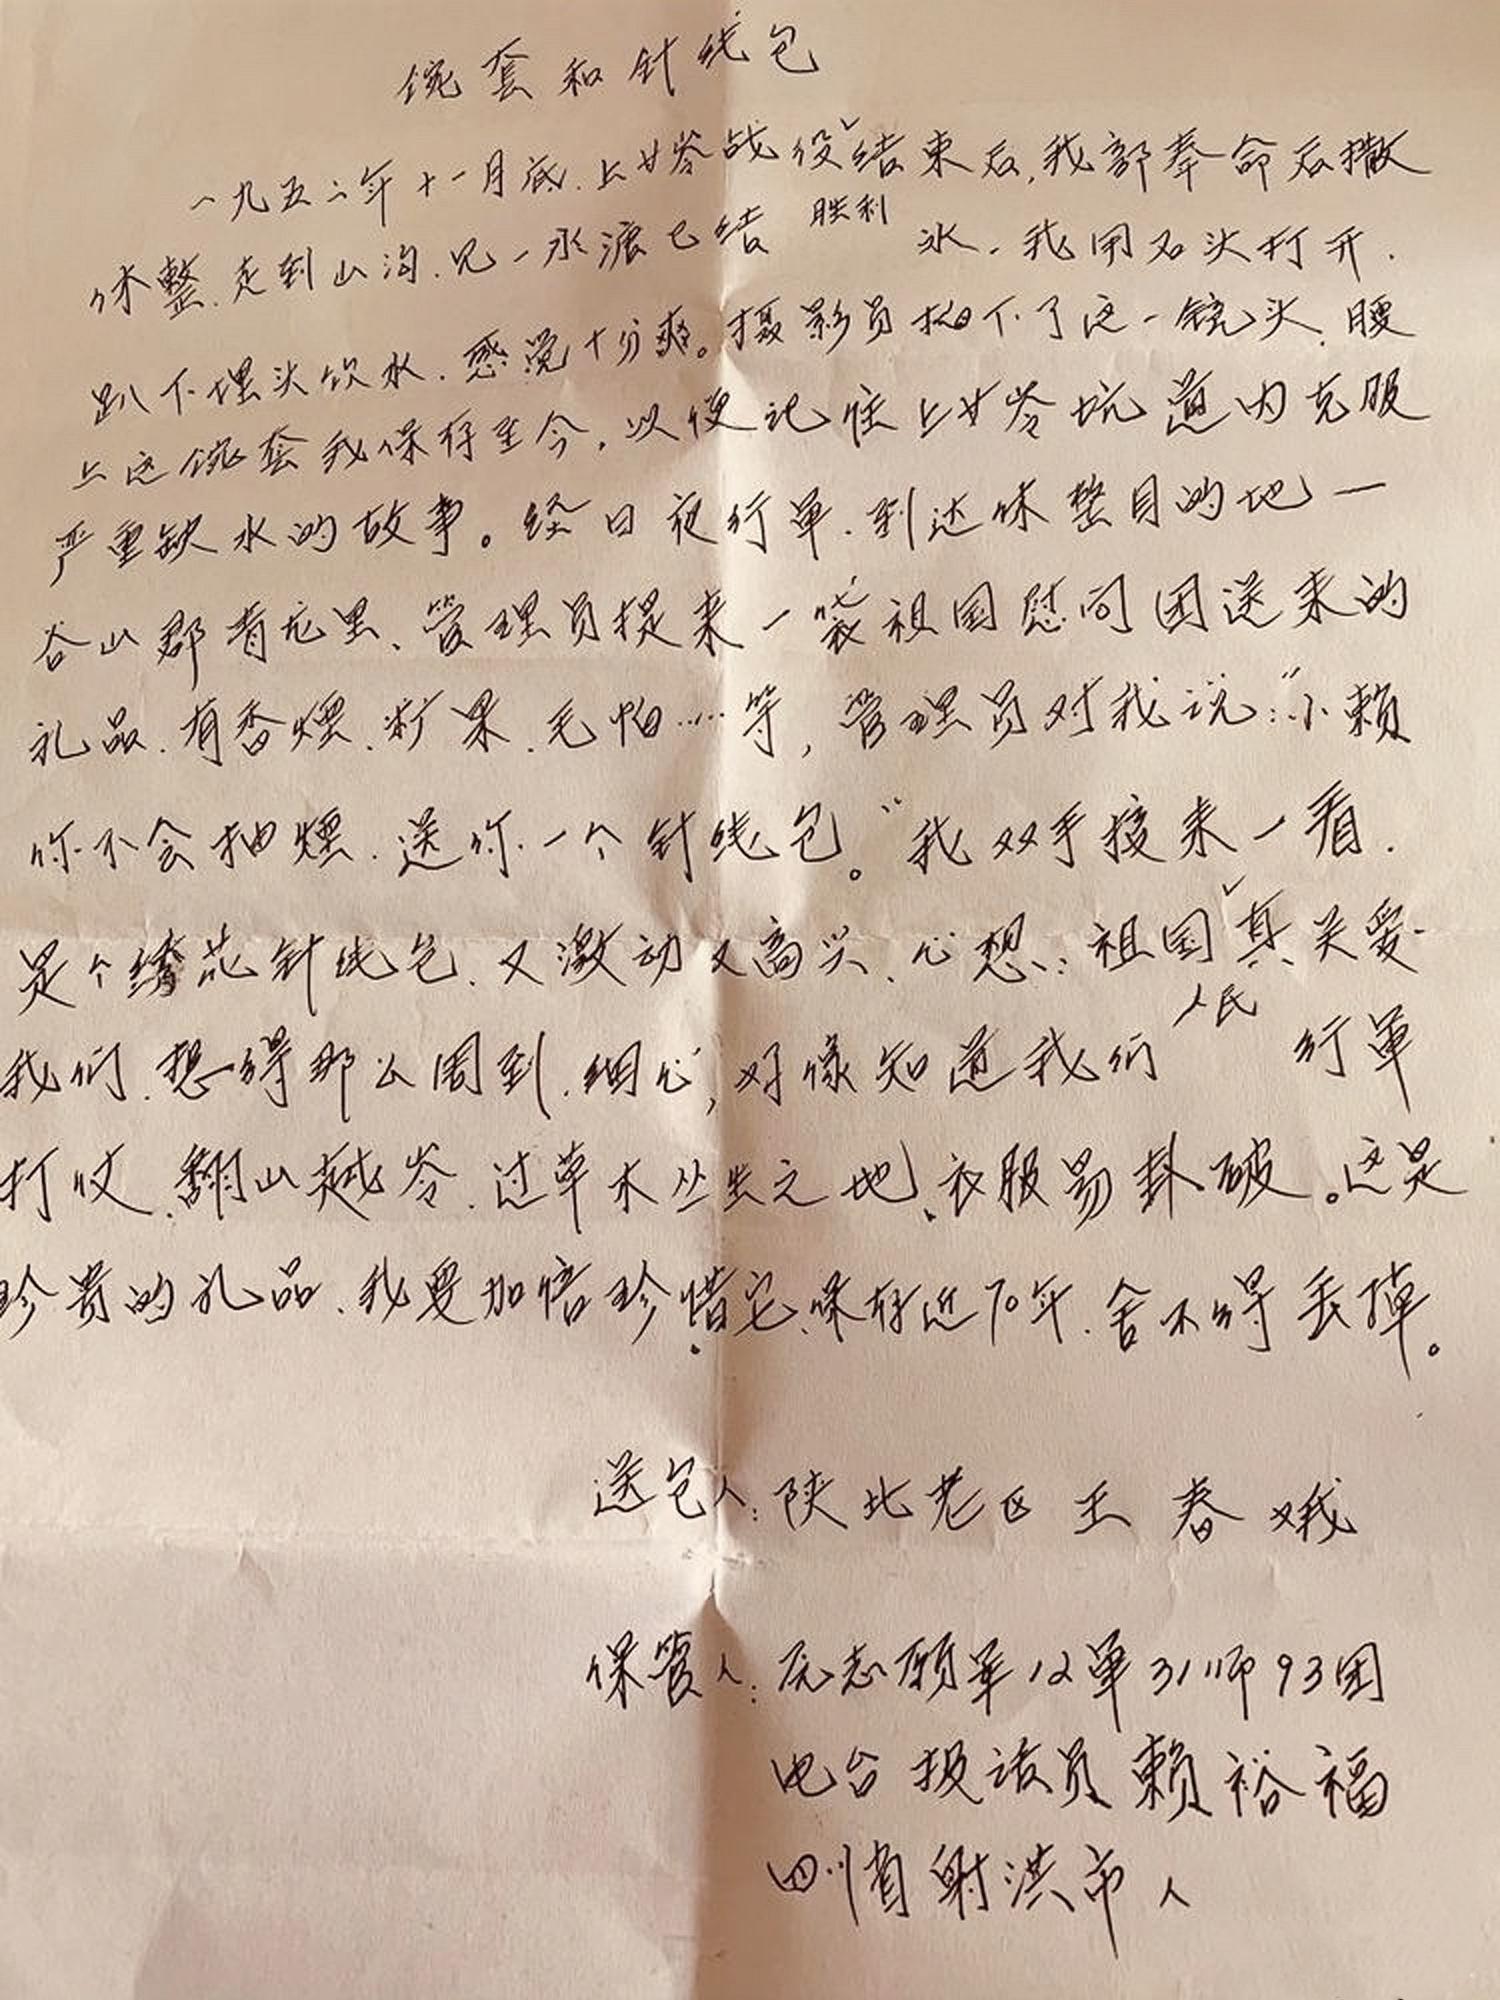 碗套和针线包
一九五二年十一月底.上甘岭战役胜利结束后,我部奉命后撤
休整.走到山沟.见一水凼已结冰.我用石头打开.
趴下埋头饮水.感觉十分爽。摄影员拍下了这一镜头.腰
上这碗套我保存至今.以便记住上甘岭坑道内克服
严重缺水的故事。经日夜行军.到达休整目的地一
谷山郡青龙里、管理员提来一袋祖国慰问团送来的
礼品.有香烟.糖果.毛帕……等,管理员对我说:“小赖
你不会抽烟.送你一个针线包。”我双手接来一看.
是个绣花针线包.又激动又高兴、心想:祖国人民真关爱
我们.想得那么周到.细心,好像知道我们行军
打仗.翻山越岭.过草木丛生之地、衣服易卦破。这是
珍贵的礼品、我要加倍珍惜它.保存近70年.舍不得丢掉。
送包人:陕北老区王春娥
保管人:原志愿军12军31师93团
电台报话员赖裕福
四川省射洪市人